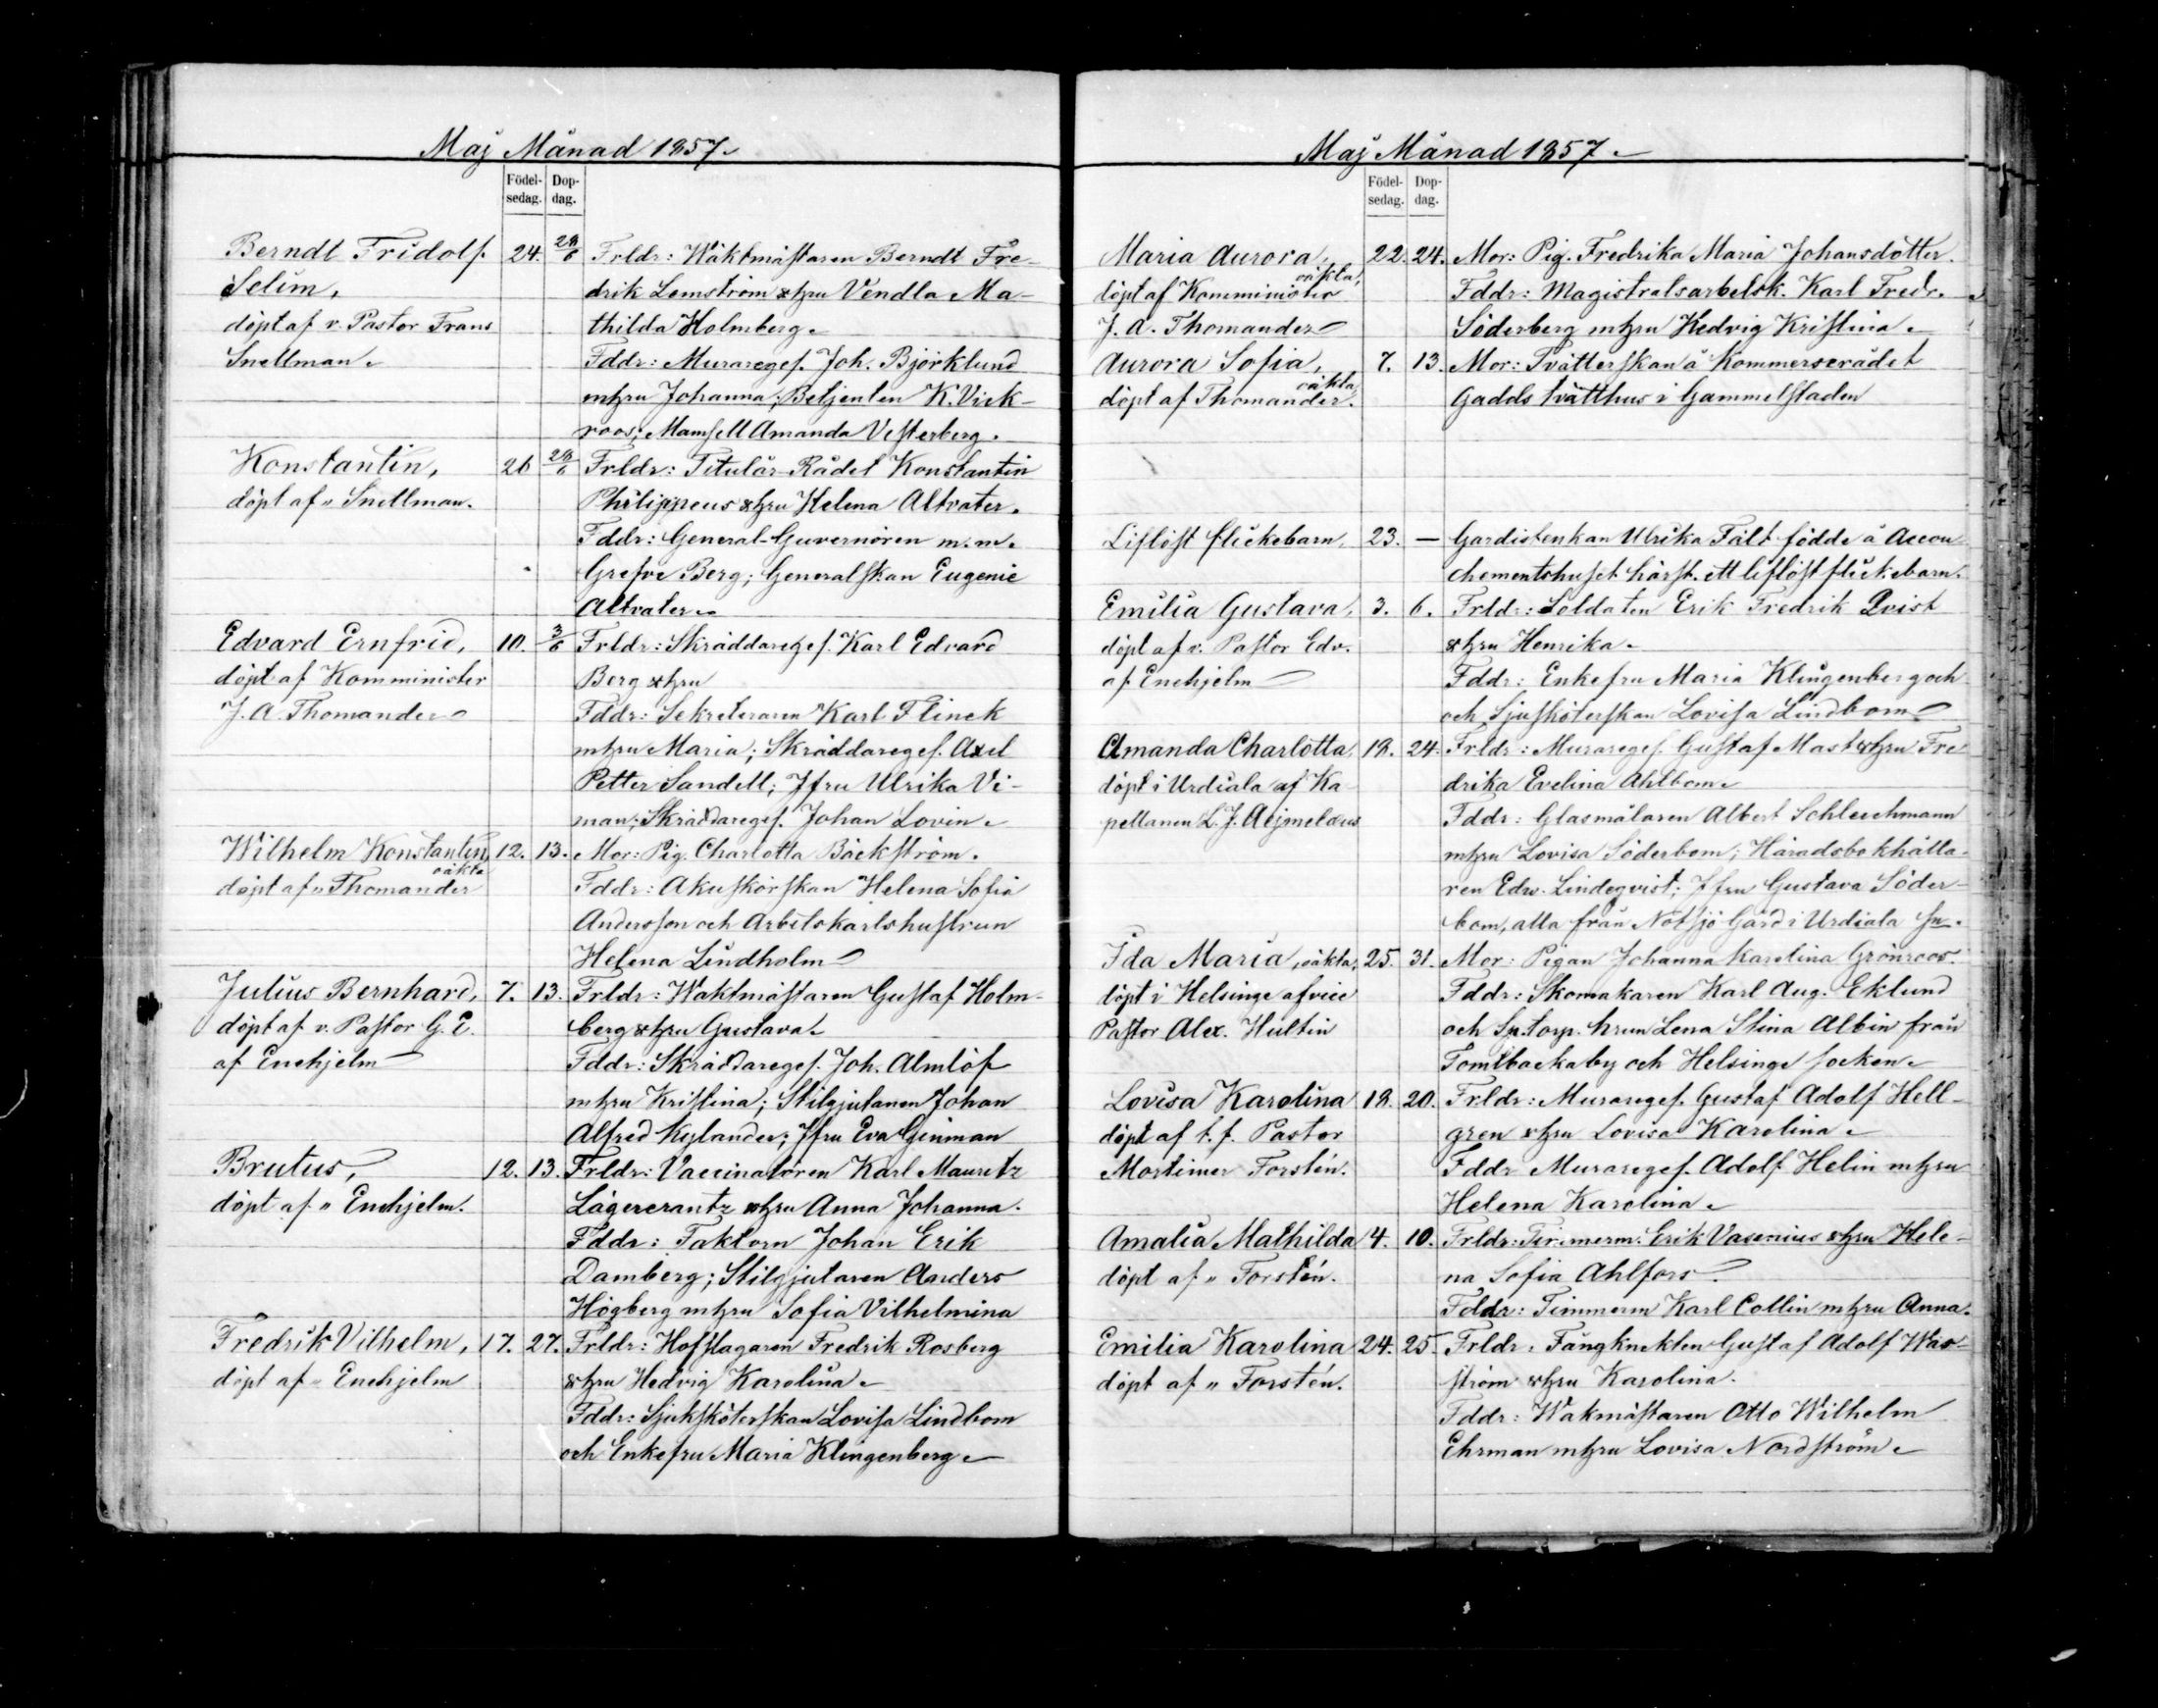 Maj Månad 1857.
Födel-
sedag.
Dop-
dag.
Berndt Fridolf 24. 28/6 Frldr: Wäktmästaren Berndt Fre-
Selim, drik Lemström &hru Vendla Ma-
döpt af v. Pastor Frans thilda Holmberg.
Snellman. Fddr: Muraregef. Joh. Björklund
mhru Johanna; Betjenten K. Vick-
roos; Mamsell Amanda Vesterberg.
Konstantin, 26 28/6 Frldr: Titulär-Rådet Konstantin
döpt af " Snellman. Philippeus &hru Helena Altvater.
Fddr: General-Guvernören m.m.
Grefve Berg; Generalskan Eugenie
Altvater.
Edvard Ernfrid, 10. 3/6 Frldr: Skräddaregef. Karl Edvard
döpt af Komminister Berg &hru
J. A. Thomander Fddr: Sekreteraren Karl Flinck
mhru Maria; Skräddaregef. Axel
Petter Sandell; Jfru Ulrika Vi-
man; Skräddaregef. Johan Lovin.
Wilhelm Konstantin, oäkta 12. 13. Mor: Pig. Charlotta Bäckström.
döpt af " Thomander Fddr: Akuskörskan Helena Sofia
Andersson och Arbetskarlshustrun
Helena Lindholm
Julius Bernhard, 7. 13. Frldr: Waktmästaren Gustaf Holm-
döpt af v. Pastor G. E. berg &hru Gustava.
af Enehjelm Fddr: Skräddaregef. Joh. Almlöf
mhru Kristina; Stilgjutaren Johan
Alfred Kylander; Jfru Eva Ginman
Brutus, 12. 13. Frldr: Vaccinatören Karl Mauritz
döpt af " Enehjelm. Lagercrantz &hru Anna Johanna.
Fddr: Faktorn Johan Erik
Damberg; Stilgjutaren Anders
Högberg mhru Sofia Vilhelmina
Fredrik Vilhelm, 17. 27. Frldr: Hofslagaren Fredrik Rosberg
döpt af " Enehjelm &hru Hedvig Karolina.
Fddr: Sjuksköterskan Lovisa Lindbom
och Enkefru Maria Klingenberg.
Maj Månad 1857.
Födel-
sedag.
Dop-
dag.
Maria Aurora, oäkta, 22. 24. Mor: Pig. Fredrika Maria Johansdotter.
döpt af Komminister Fddr: Magistratsarbetsk. Karl Fredr.
J. A. Thomander Söderberg mhru Hedvig Kristina.
Aurora Sofia, oäkta, 7. 13. Mor: Tvätterskan å Kommerserådet
döpt af Thomander. Gadds tvätthus i Gammelstaden
Liflöst flickebarn, 23. — Gardistenkan Ulrika Fält födde å Accou-
chementshuset härst. ett liflöst flickebarn.
Emilia Gustava, 3. 6. Frldr: Soldaten Erik Fredrik Qvist
döpt af v. Pastor Edv. &hru Henrika.
af Enehjelm Fddr: Enkefru Maria Klingenberg och
och Sjusköterskan Lovisa Lindbom
Amanda Charlotta, 18. 24. Frldr: Muraregef. Gustaf Mast &hru Fre
döpt i Urdiala af Ka drika Evelina Ahlbom.
pellanen L. J. Aejmelæus Fddr: Glasmålaren Albert Schleuchmann
mhru Lovisa Söderbom; Häradsbokhålla-
ren Edw. Lindeqvist; Jfru Gustava Söder-
bom, alla från Notsjö Gård i Urdiala Sn.
Ida Maria, oäkta, 25. 31. Mor: Pigan Johanna Karolina Grönroos.
döpt i Helsinge af vice Fddr: Skomakaren Karl Aug. Eklund
Pastor Alex. Hultin och Sp.torp. hrun Lena Stina Albin från
Tomtbackaby och Helsinge socken.
Lovisa Karolina 18. 20. Frldr: Muraregef. Gustaf Adolf Hell-
döpt af t.f. Pastor gren &hru Lovisa Karolina.
Mortimer Forstén. Fddr Muraregef. Adolf Helin mhru
Helena Karolina.
Amalia Mathilda 4. 10. Frldr: Timmerm. Erik Vasenius &hru Hele-
döpt af " Forstén. na Sofia Ahlfors.
Fddr: Timmerm Karl Collin mhru Anna.
Emilia Karolina 24. 25. Frldr: Fångknekten Gustaf Adolf Was-
döpt af " Forstén. ström &hru Karolina.
Fddr: Wakmästaren Otto Wilhelm
Ehrman mhru Lovisa Nordström.